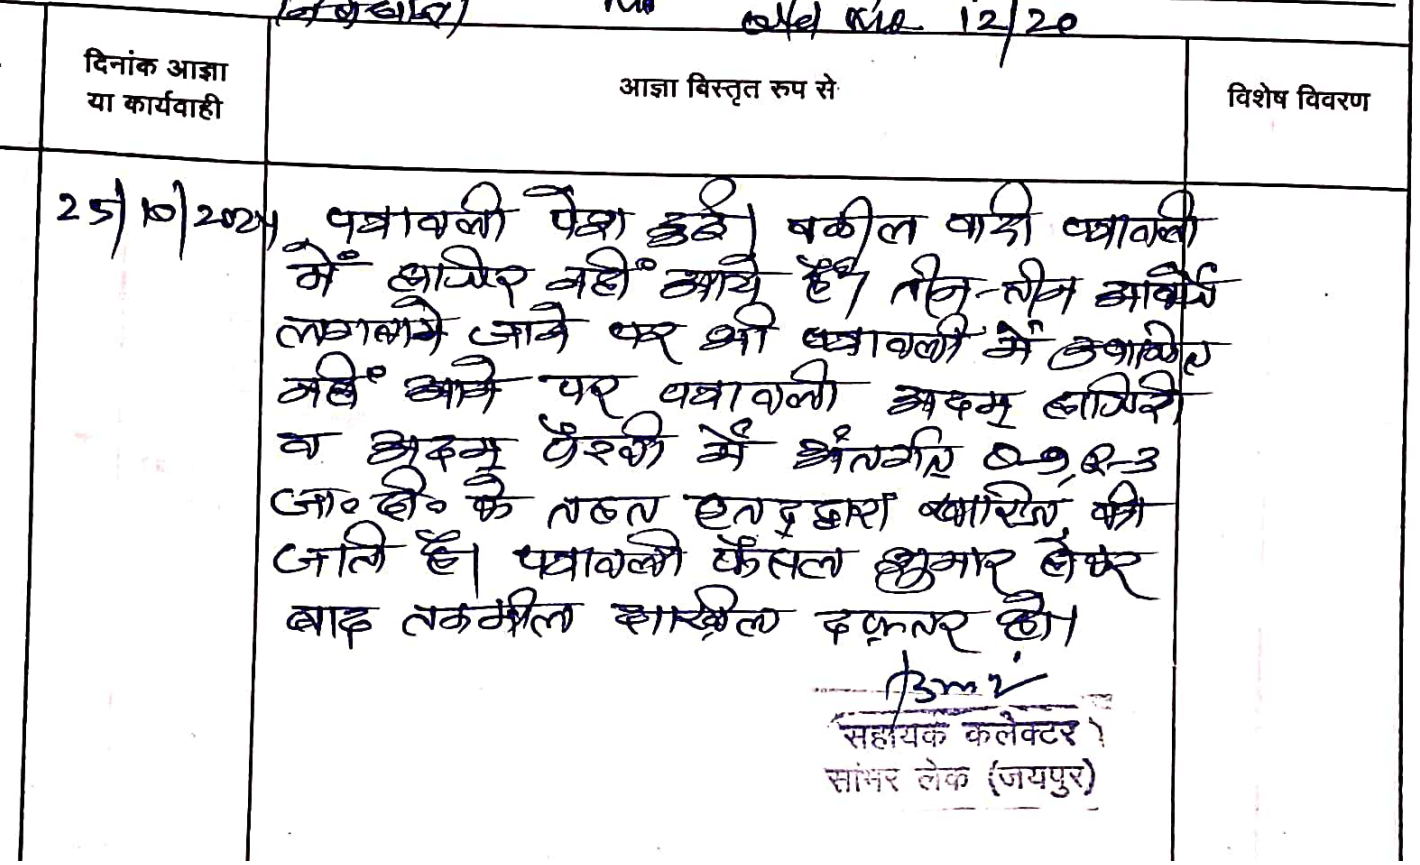 12/20
दिनांक आज्ञा
या कार्यवाही
आज्ञा विस्तृत रुप से
विशेष विवरण
25/10/2024 पत्रावली पेश हुई। वकील वादी पत्रावली
में हाजिर नहीं आये है। तीन-तीन आवाजें
लगवाये जाने पर भी पत्रावली में उपस्थित
नहीं आने पर पत्रावली अदम् हाजिरी
व अदम् पैरवी में अंतर्गत 0-9, R-3
जा॰ दी॰ के तहत एतद्द्वारा खारिज की
जाती है। पत्रावली फैसल शुमार होकर
बाद तकमील दाखिल दफ़्तर हो।
सहायक कलेक्टर
सांभर लेक (जयपुर)